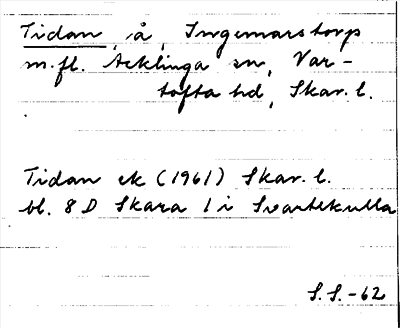 Tidan, å, Ingemarstorp
m.fl. Acklinga sn, Var-
tofta hd, Skar. l.
Tidan ek (1961) Skar. l.
bl. 8 D Skara 1 i Svartekulla
S.S.-62